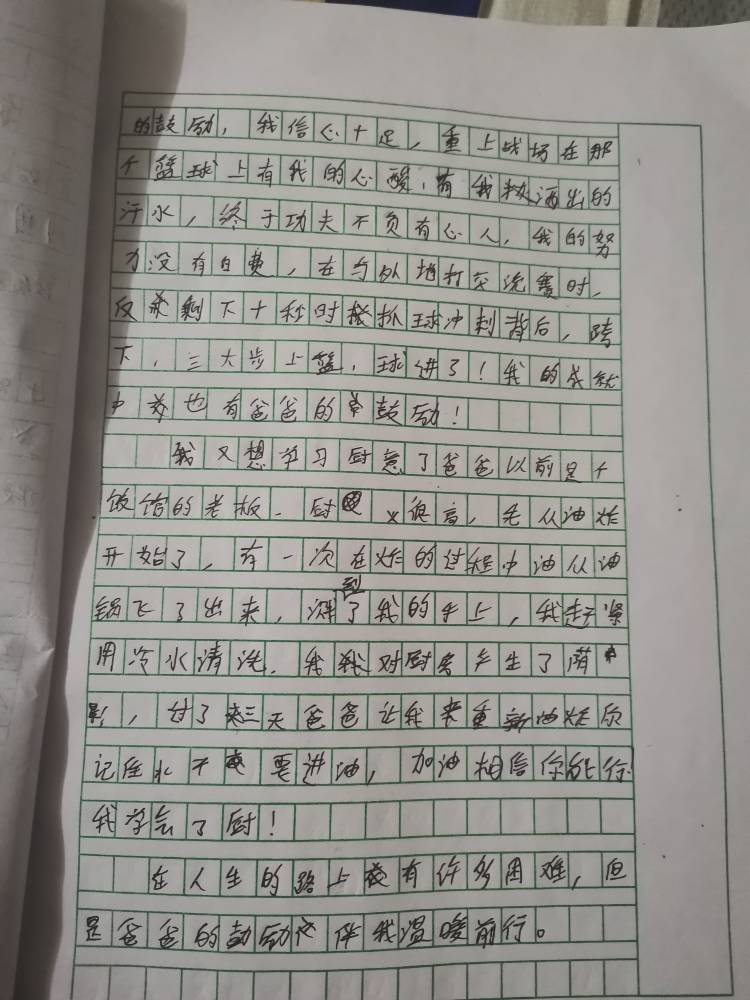 的鼓励，我信心十足，重上战场在那
个篮球上有我的心酸，有我挥洒出的
汗水，终于功夫不负有心人，我的努
力没有白费，在与外地打交流赛时，
仅剩下十秒时我抓球冲刺背后，跨
下，三大步上篮，球进了！我的成就
中也有爸爸的鼓励！
我又想学习厨意了爸爸以前是个
饭馆的老板，厨很高，先从油炸
开始了，有一次在炸的过程中油从油
锅飞了出来，溅到了我的手上，我赶紧
用冷水清洗，我对厨房产生了荫
影，过了三天爸爸让我来重新油炸
记住水不要进油，加油相信你能行
我学会了厨！
在人生的路上有许多困难，但
是爸爸的鼓励伴我温暖前行。